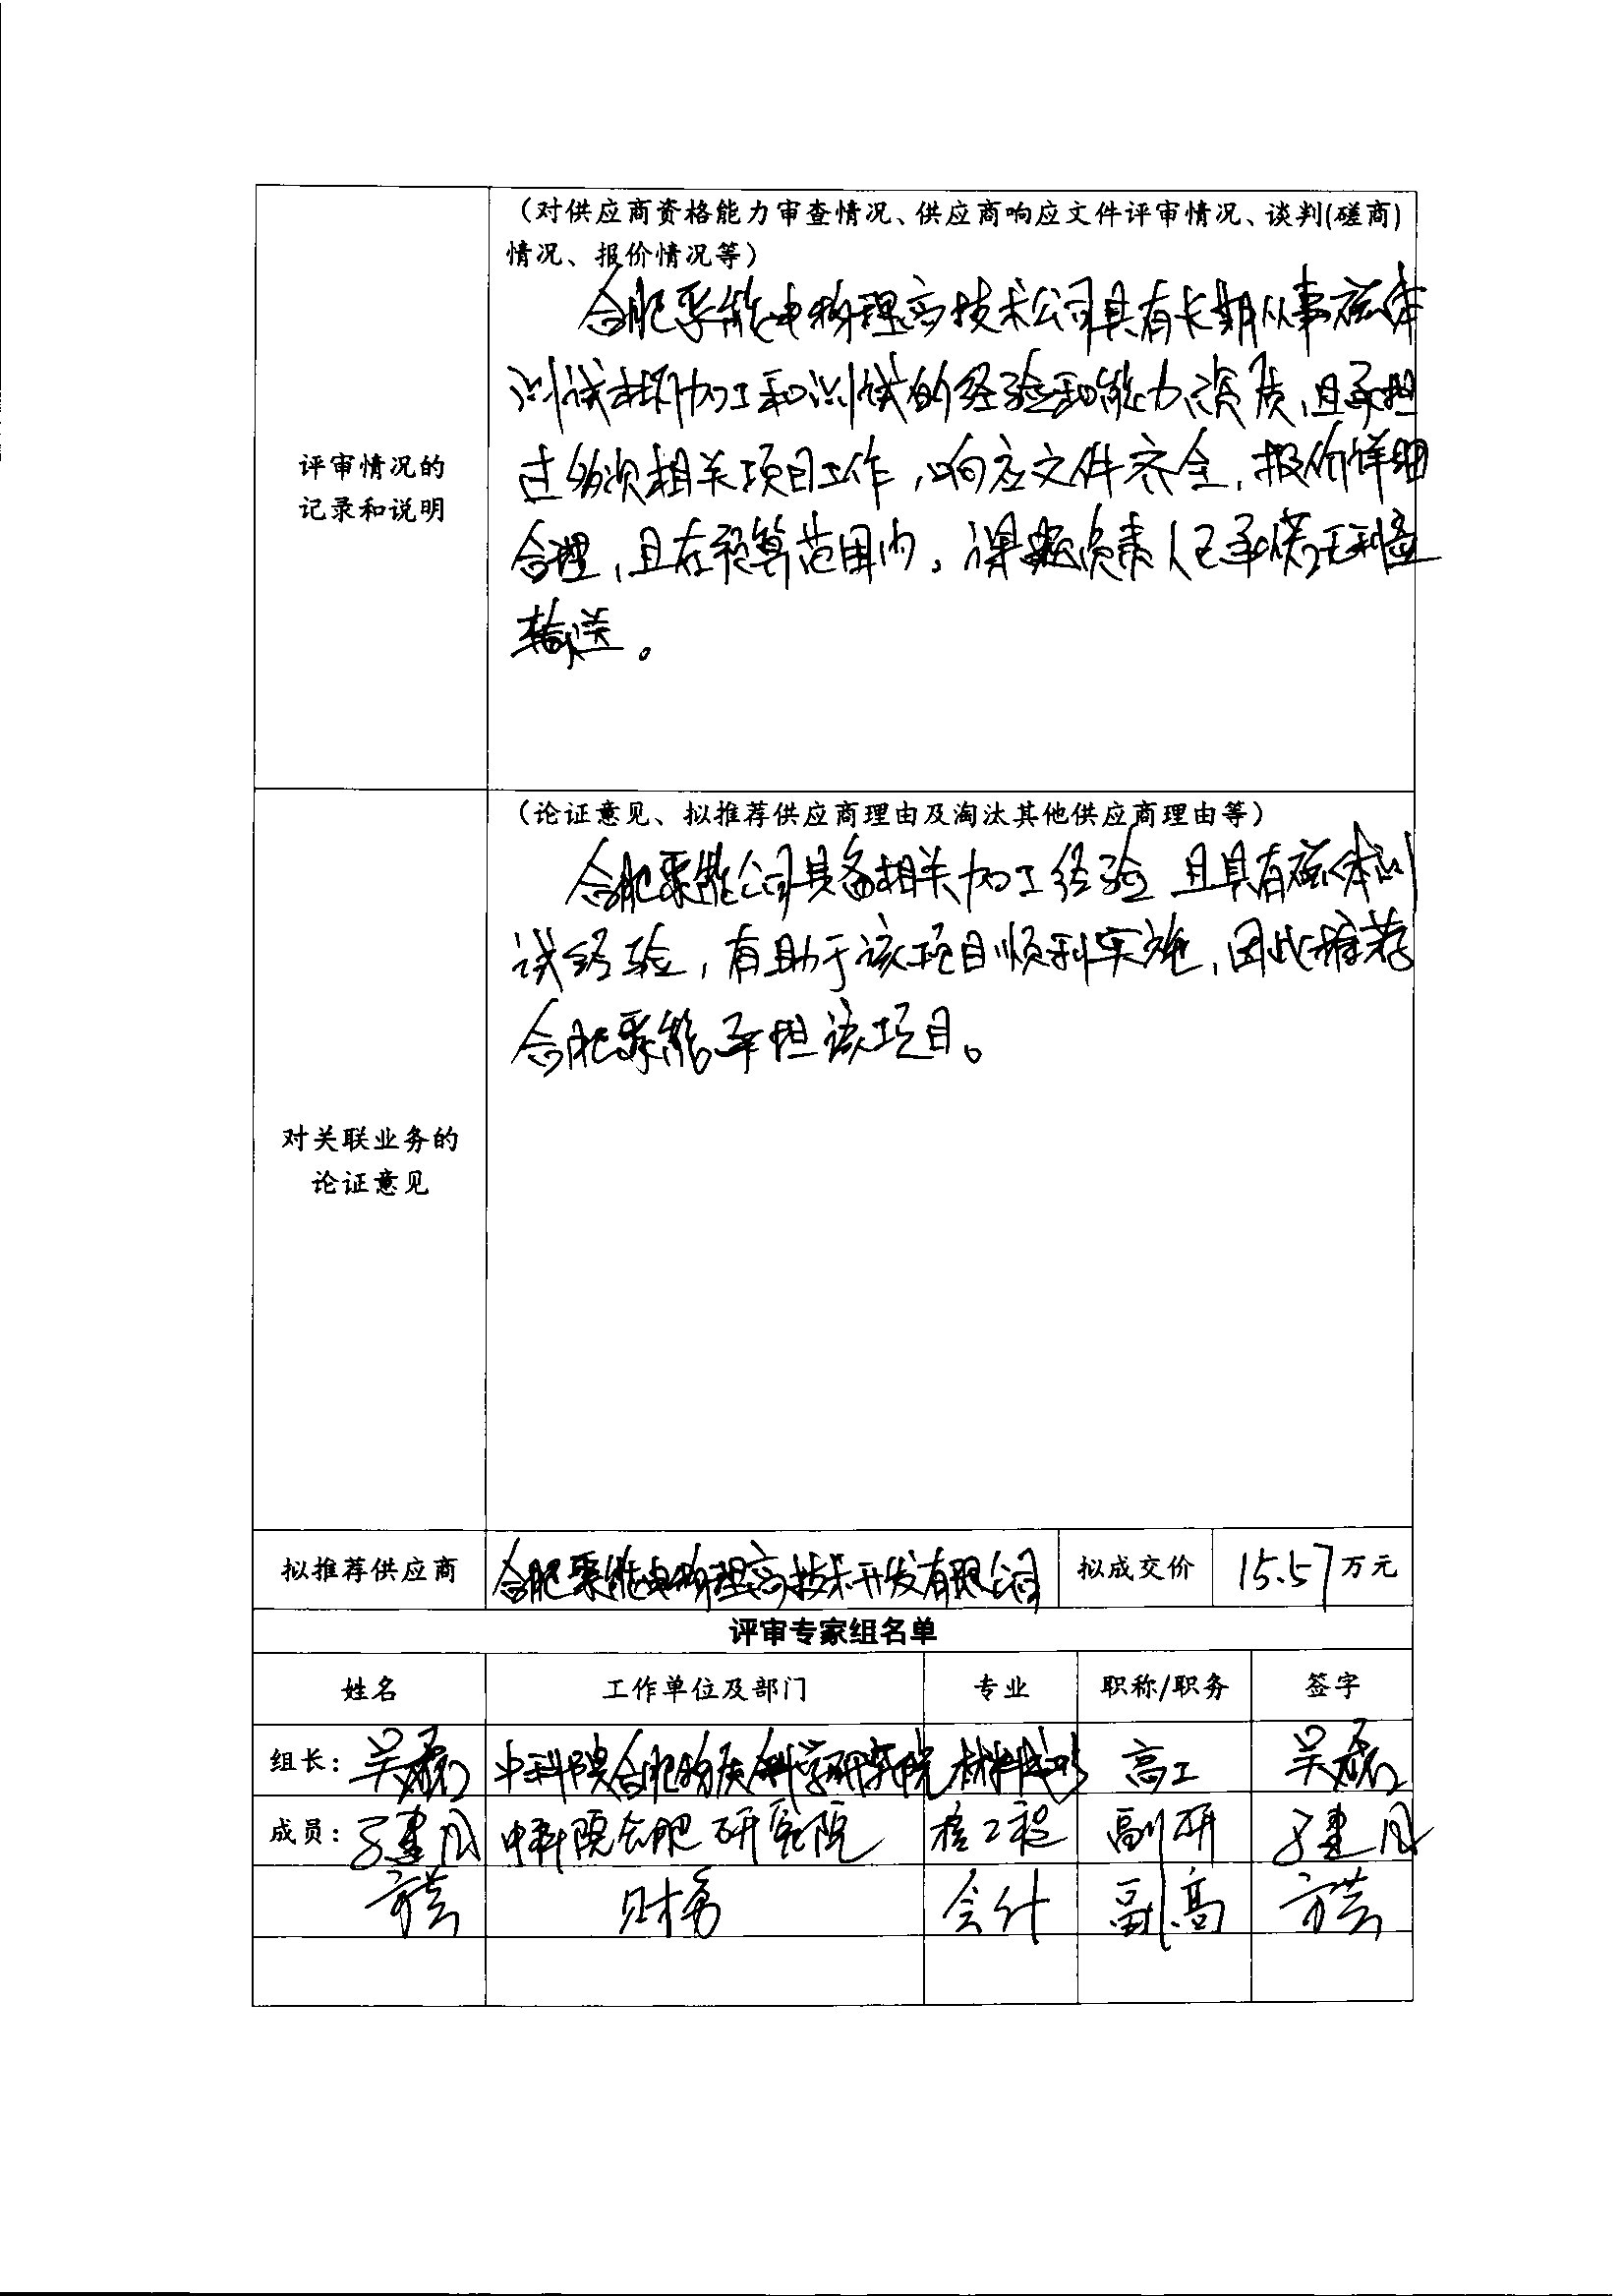 （对供应商资格能力审查情况、供应商响应文件评审情况、谈判(磋商)
情况、报价情况等）
合肥聚能电物理高技术公司具有长期从事磁体
测试材料加工和测试的经验和能力资质，且承担
过多次相关项目工作，响应文件齐全，报价详细
合理，且在预算范围内。课题负责人已承诺无利益
输送。
评审情况的
记录和说明
（论证意见、拟推荐供应商理由及淘汰其他供应商理由等）
合肥聚能公司具备相关加工经验 且具有磁体测
试经验，有助于该项目顺利实施，因此推荐
合肥聚能承担该项目。
对关联业务的
论证意见
拟推荐供应商 合肥聚能电物理高技术开发有限公司 拟成交价 15.57万元
评审专家组名单
姓名 工作单位及部门 专业 职称/职务 签字
组长： 中科院合肥物质科学研究院 材料成形 高工
成员： 中科院合肥研究院 核工程 副研
财务 会计 副高